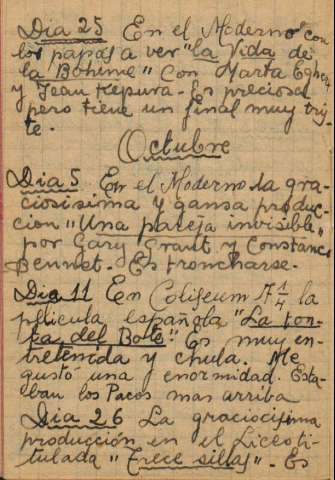 Dia 25 En el Moderno con
los papás a ver "la Vida de
la Boheme" Con Marta Eghert
y Jean Kepura - Es preciosa
pero tiene un final muy tris
te.
Octubre
Dia 5 En el Moderno la gra-
ciosisima y gansa produc-
cion "Una pareja invisible"
por Gary Grant y Constance
Bennet - Es troncharse.
Dia 11 En Coliseum 7 1/4 la
pelicula española "La ton-
ta del Bote" Es muy en-
tretenida y chula. Me
gustó una enormidad. Esta-
ban los Pacos mas arriba
Dia 26 La graciocisima
producción en el Liceo ti-
tulada "Trece sillas" - Es